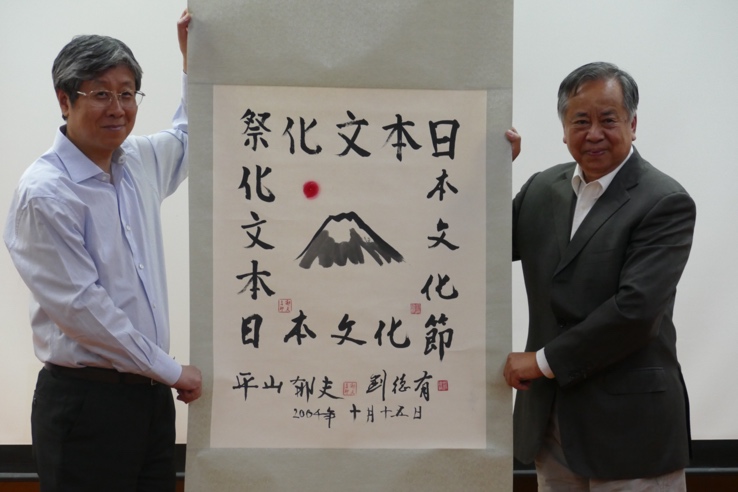 日本文化祭
日本文化節
日本文化祭
日本文化節
平山郁夫 劉德有
2004年十月十五日